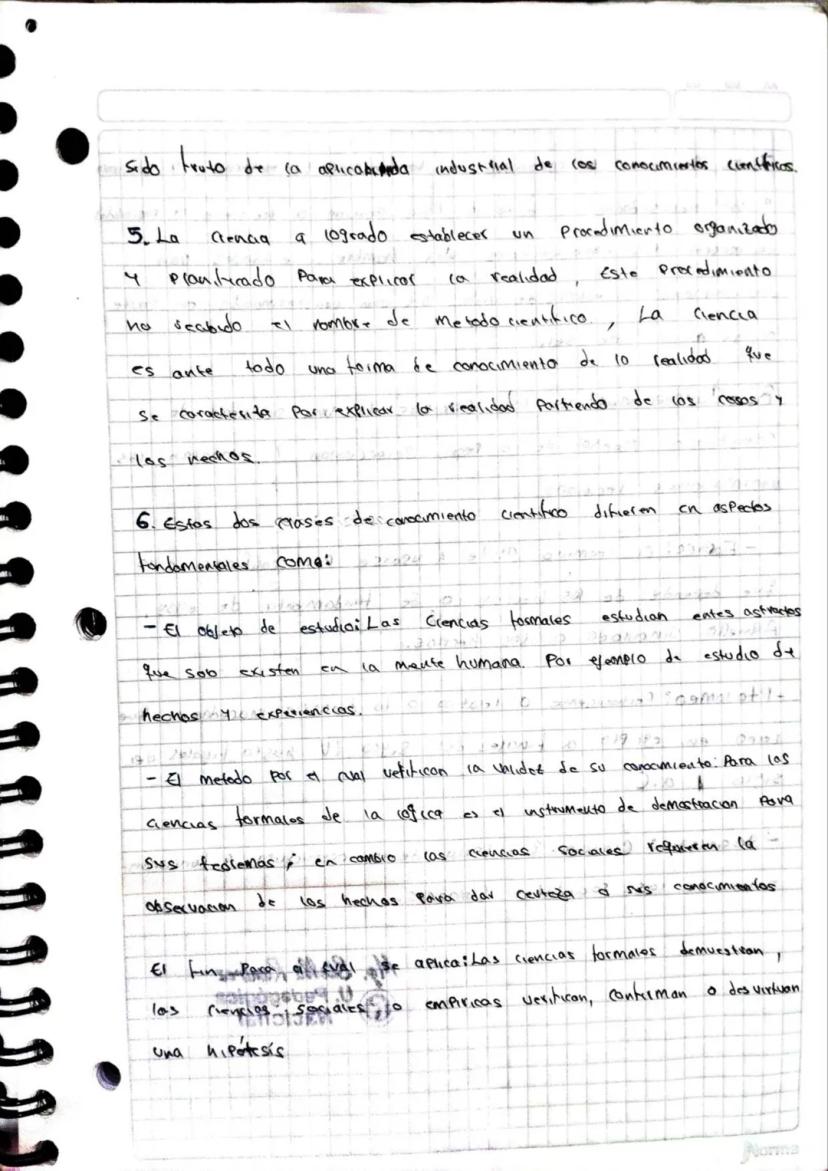 sido fruto de la industrial de los conocimientos científicos.
5. La ciencia a logrado establecer un Procedimiento organizado
y Planificado Para explicar la realidad, Este Procedimiento
ha recibido el nombre de metodo científico., La ciencia
es ante todo una forma de conocimiento de la realidad que
se caracteriza Por explicar la realidad Partiendo de las cosas y
los hechos.
6. Estas dos clases de conocimiento científico difieren en aspectos
fundamentales como:
- El objeto de estudio: Las Ciencias formales estudian entes astractos
que solo existen en la mente humana. Por ejemplo de estudio de
hechos y experiencias.
- El metodo por el cual verifican la validez de su conocimiento: Para las
ciencias formales de la logica es el instrumento de demostracion Para
sus teoremas; en cambio las ciencias sociales requieren la -
observacion de los hechos para dar certeza a sus conocimientos
El fin Para el cual se aplica: Las ciencias formales demuestran,
las ciencias sociales, o empiricas verifican, confirman o desvirtuan
una hipótesis
Norma